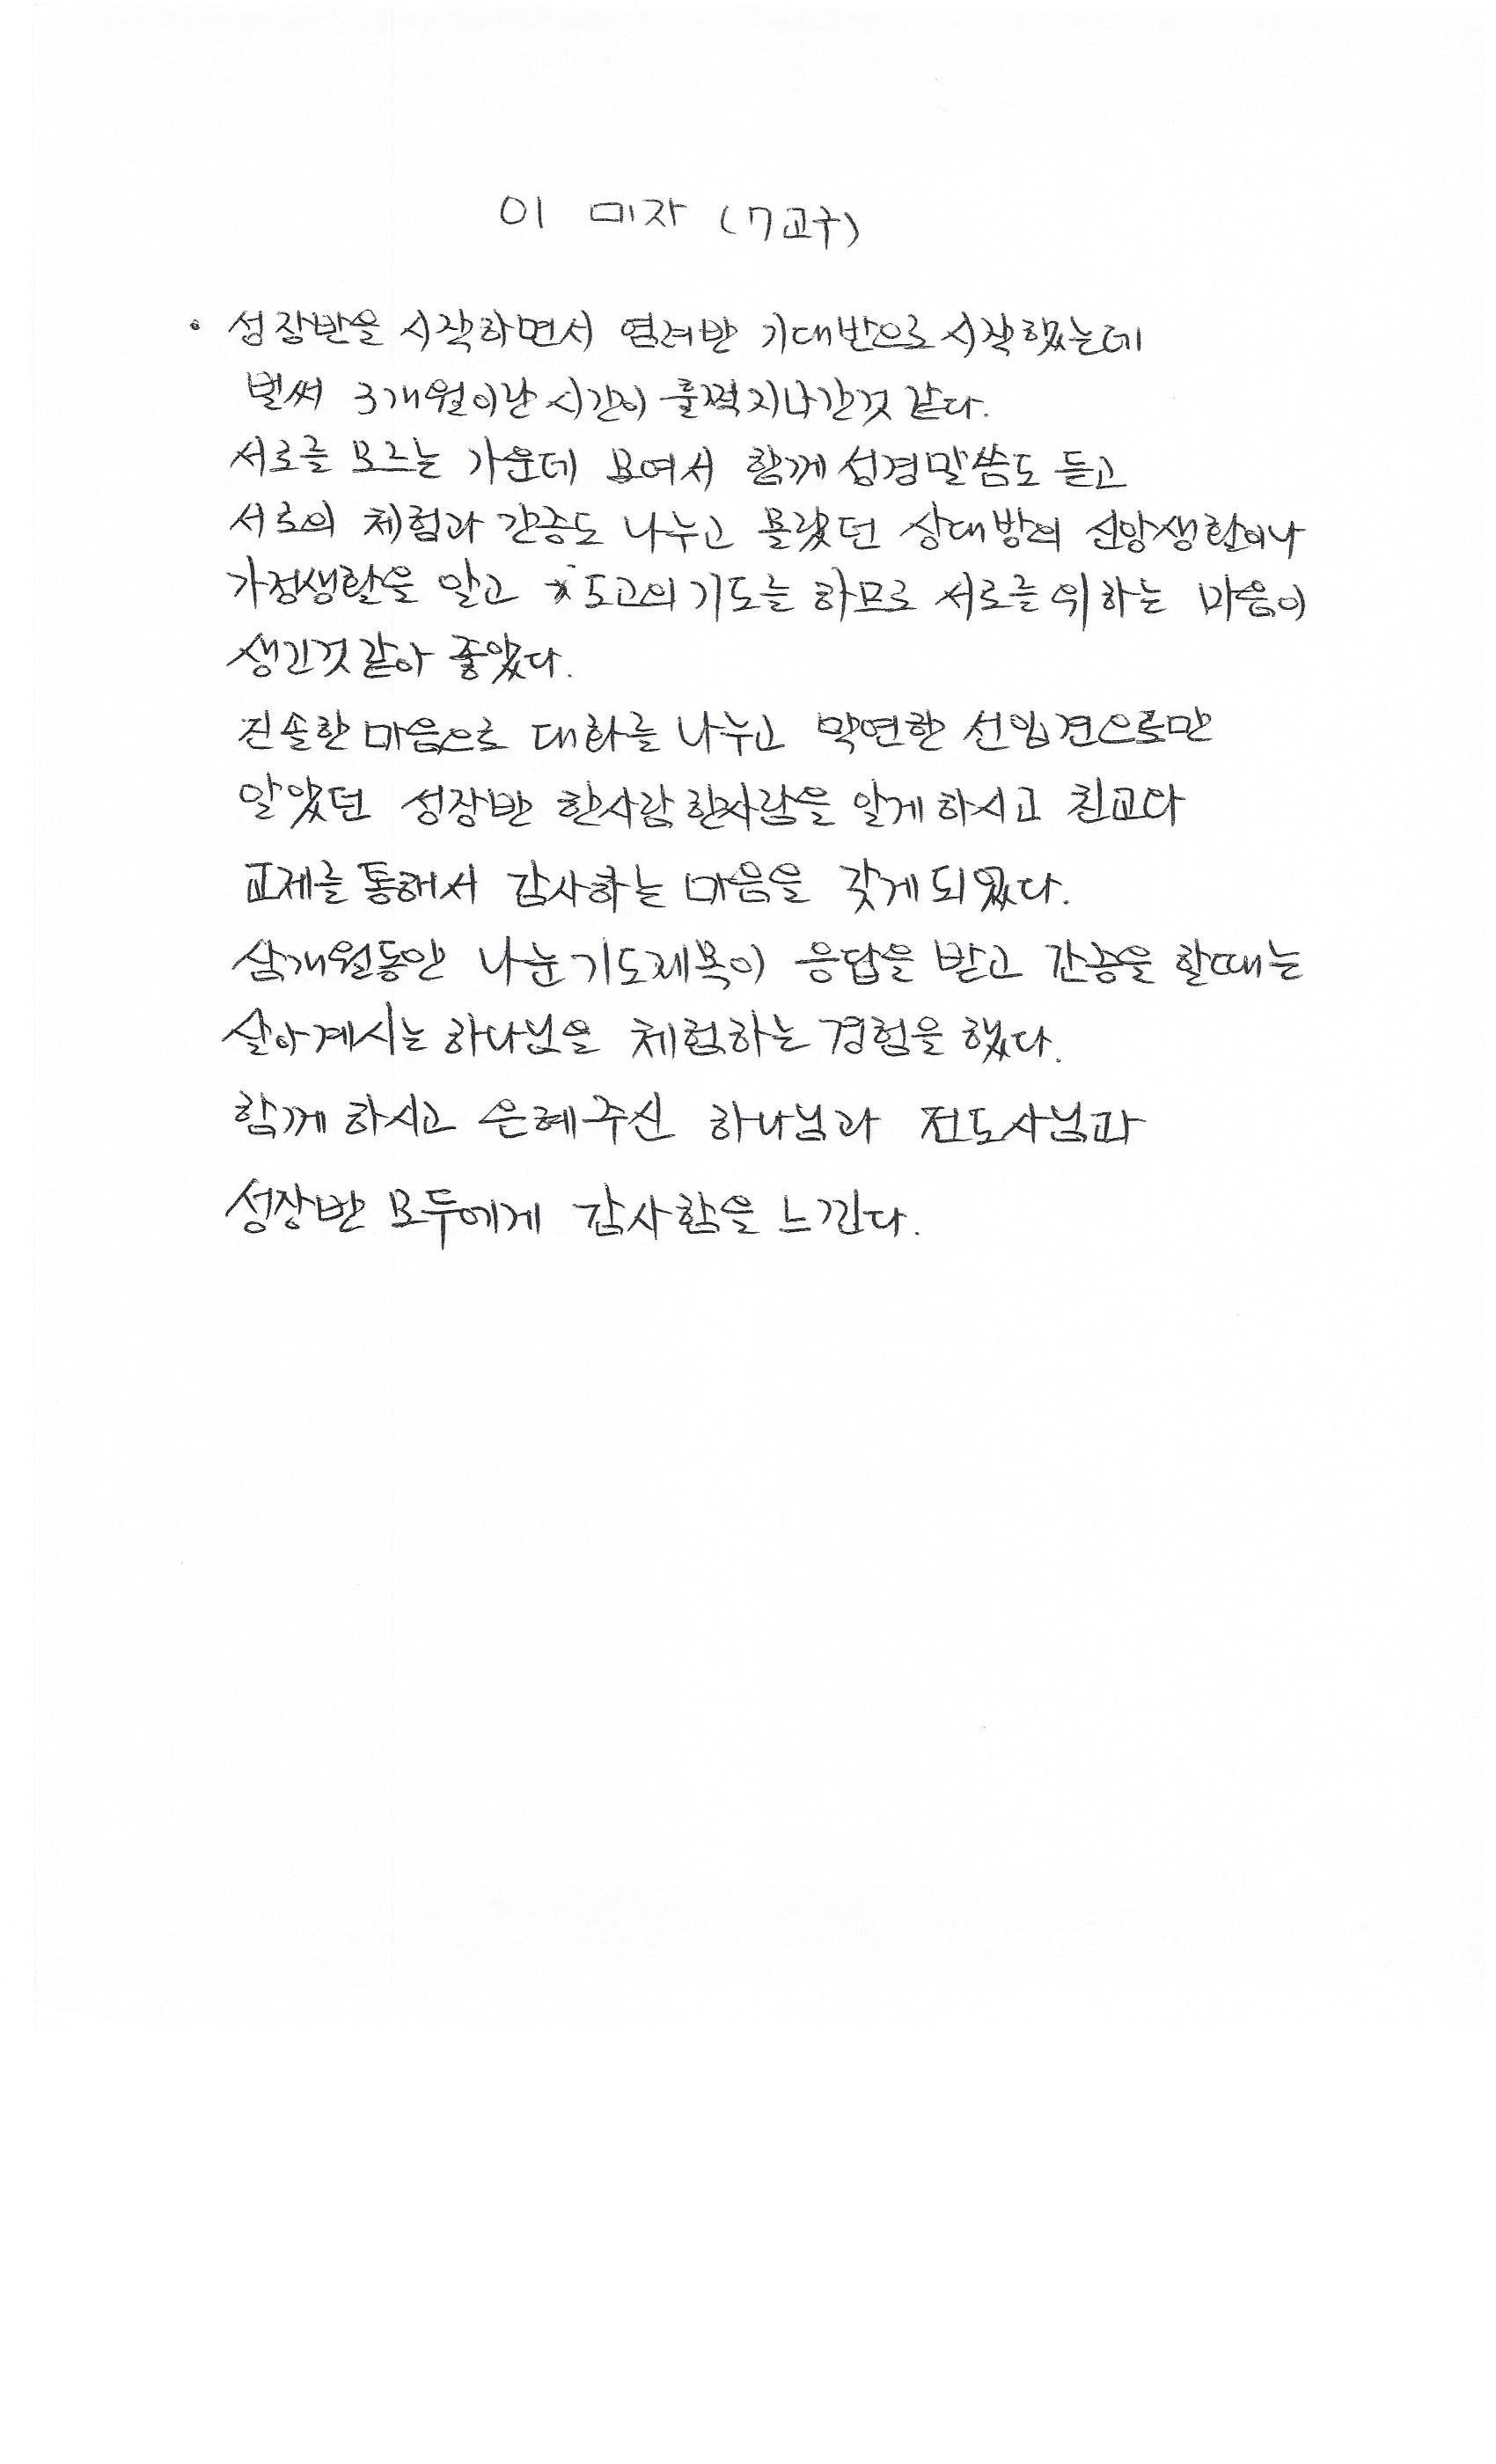 이 미자 (7교구)
• 성장반을 시작하면서 염려반 기대반으로 시작했는데
벌써 3개월이란 시간이 훌쩍지나간것 같다.
서로를 모르는 가운데 모여서 함께 성경말씀도 듣고
서로의 체험과 간증도 나누고 몰랐던 상대방의 신앙생활이나
가정생활을 알고 도고의기도를 하므로 서로를위하는 마음이
생긴것같아 좋았다.
진솔한 마음으로 대화를 나누고 막연한 선입견으로만
알았던 성장반 한사람한사람을 알게하시고 친교다
교제를 통해서 감사하는 마음을 갖게되었다.
삼개월동안 나눈기도제목이 응답을 받고 간증을 할때는
살아계시는 하나님을 체험하는 경험을 했다.
함께하시고 은혜주신 하나님과 전도사님과
성장반 모두에게 감사함을 느낀다.